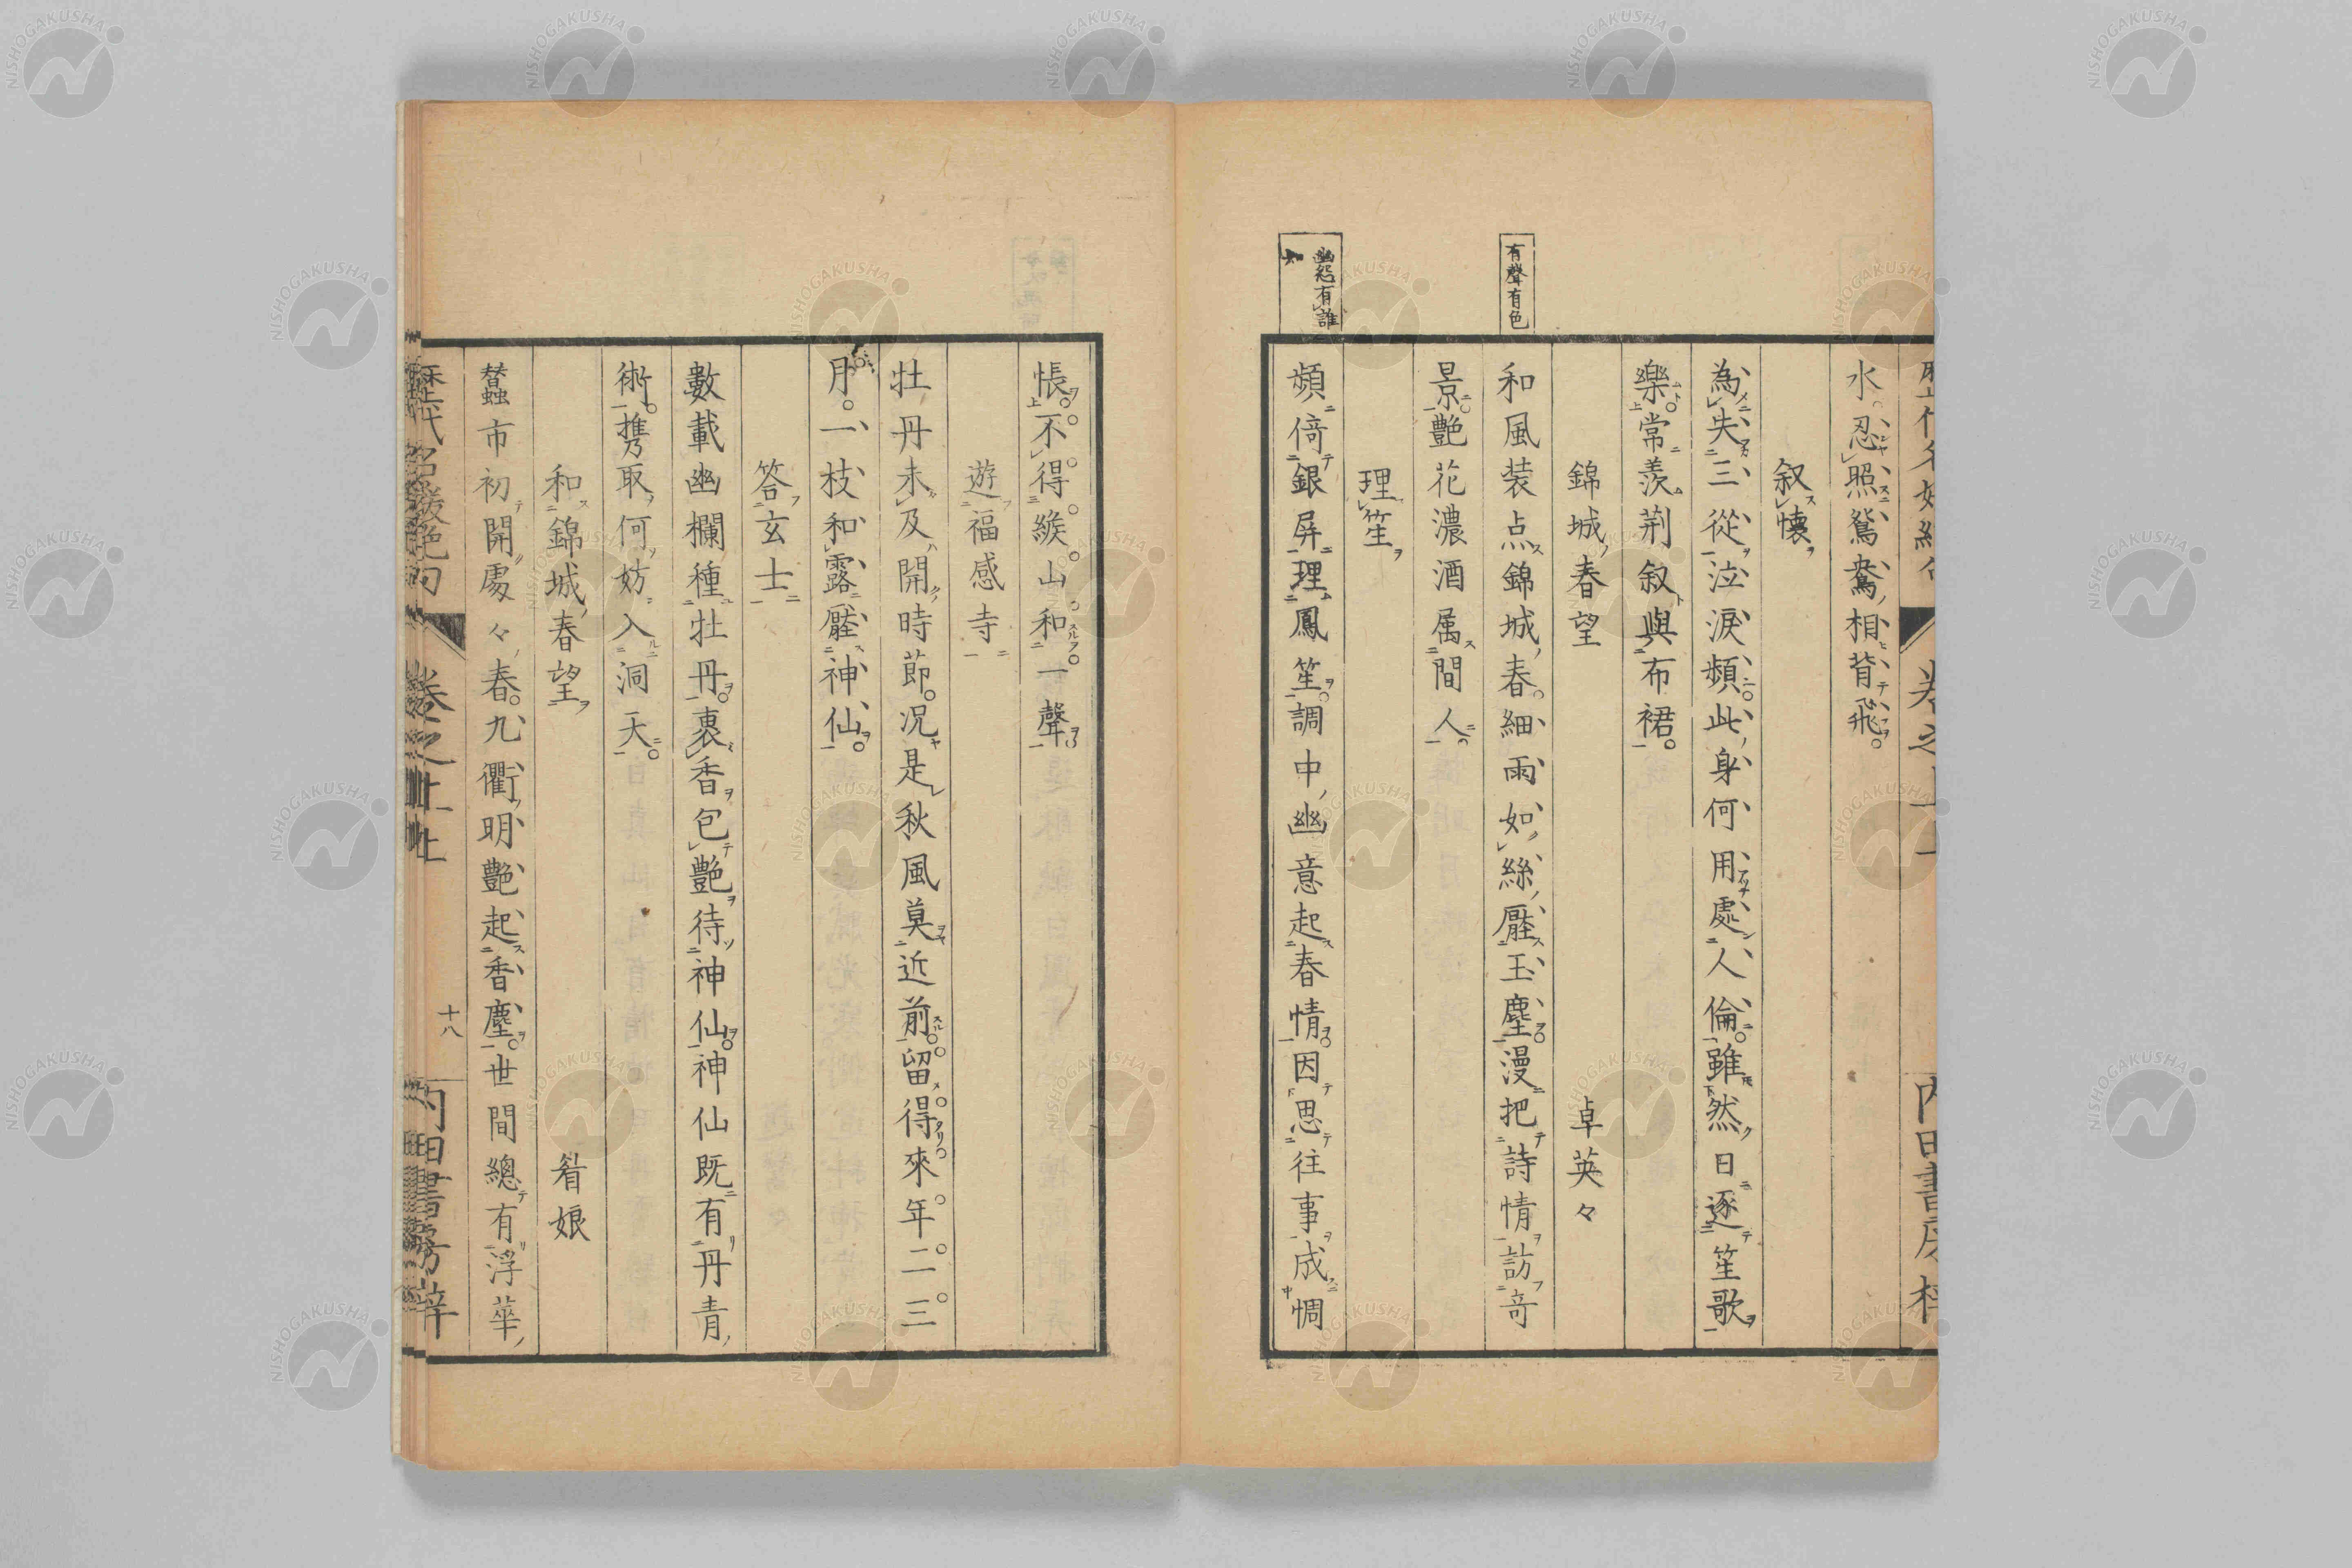 水忍照鴛鴦相背飛
叙懐
為失三從泣淚頻此身何用處人倫雖然日逐笙歌
樂常羨荆叙與布裙
錦城春望 卓英々
和風装点錦城春細雨如絲壓玉塵漫把詩情訪奇
景艶花濃酒属間人
理笙
頻倚銀屏理鳳笙調中幽意起春情因思往事成惆
有聲有色
幽怨有誰
知
悵不得緱山和一聲
遊福感寺
牡丹未及開時節况是秋風莫近前留得來年二三
月一枝和露壓神仙
答玄士
數載幽欄種牡丹裹香包艶待神仙神仙既有丹青
術攜取何妨入洞天
和錦城春望 眉娘
蠶市初開處々春九衢明艶起香塵世間總有浮華
歴代名媛絶句 卷之上 十八 内田書房梓
NISHOGAKUSHA